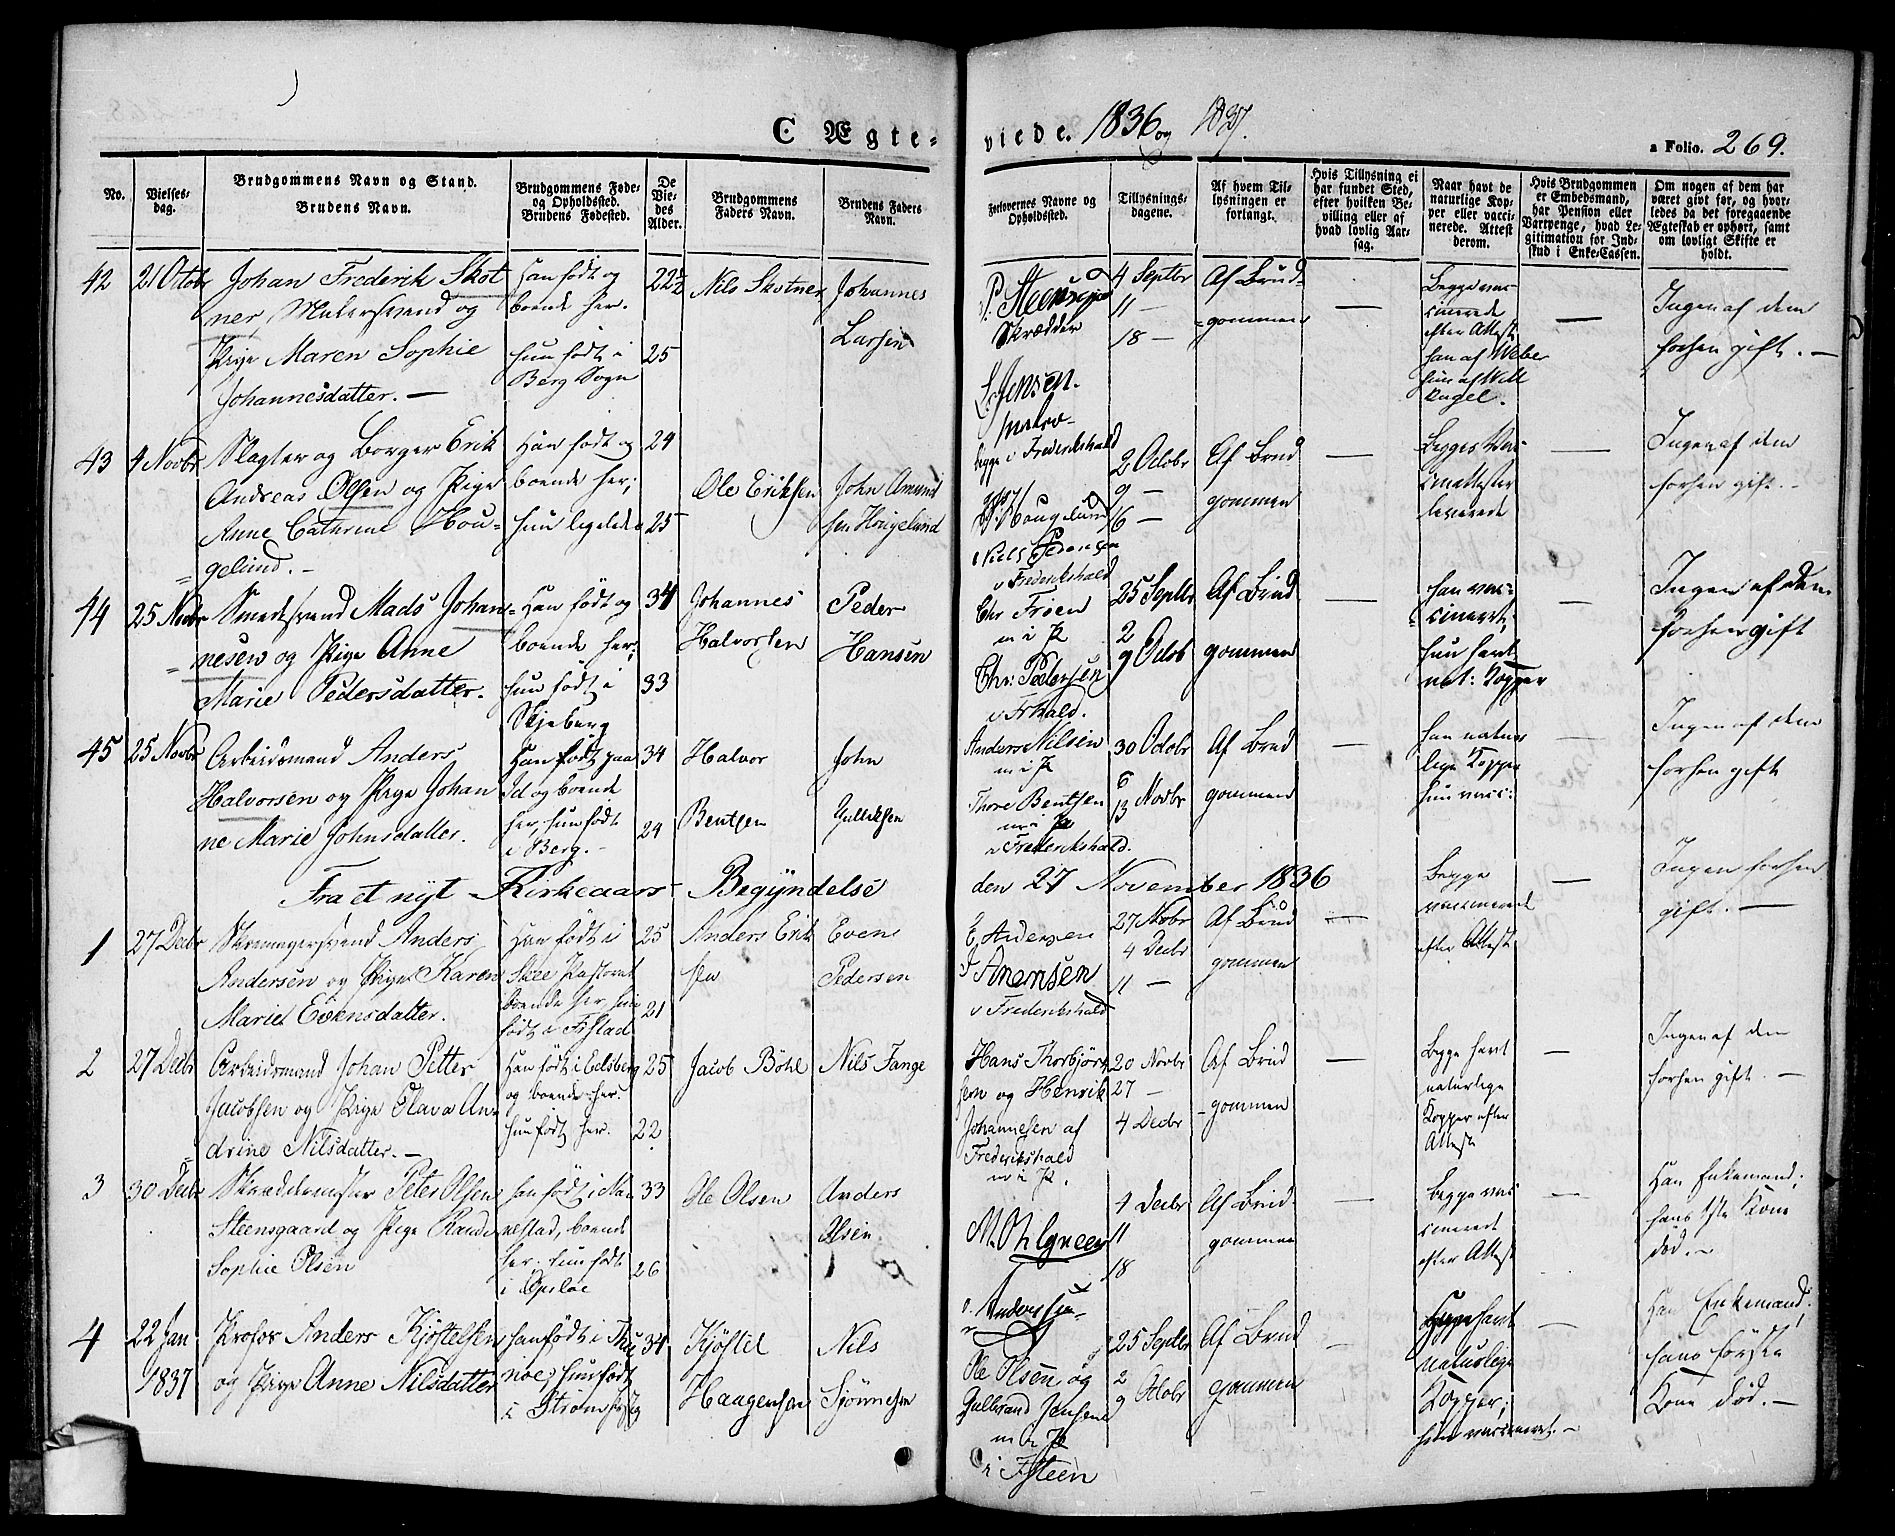 C Ægte-
viede. 1836 og 1837.
a Folio. 269.
No.
Vielses-
dag.
Brudgommens Navn og Stand.
Brudens Navn.
Brudgommens Føde-
og Opholdssted.
Brudens Fødested.
De
Vie-
des
Alder.
Brudgommens
Faders Navn.
Brudens Faders
Navn.
Forlovernes Navne og
Opholdssted.
Tillysnings-
dagene.
Af hvem Til-
lysningen er
forlangt.
Hvis Tillysning ei
har fundet Sted,
efter hvilken Be-
villing eller af
hvad lovlig Aar-
sag.
Naar havt de
naturlige Kop-
per eller vacci-
nerede. Attest
derom.
Hvis Brudgommen
er Embedsmand,
har Pension eller
Vartpenge, hvad Le-
gitimation for Ind-
skud i Enke-Cassen.
Om nogen af dem har
været givt før, og hvor-
ledes da det foregaaende
Ægteskab er ophørt, samt
om lovligt Skifte er
holdt.
42
21 Octobr
Johan Frederik Skot
ner, Malersvend og
Pige Maren Sophie
Johannesdatter. —
Han født og
boende her.
hun født i
Berg Sogn
22½
25
Nils Skotner
Johannes
Larsen
P. Steens
Skrædder
L. Jensen.
begge i Frederikshald
4 Septbr
11 —
18 —
Af Brud-
gommen
—
Begge vac-
cinerede
efter Attest
han af Weber
hun af Will
—
Ingen af dem
forhen gift. —
43
4 Novbr
Slagter og Borger Erik
Andreas Olsen og Pige
Anne Catrine Hou-
gelund. —
Han født og
boende her;
hun ligeledes
24
25
Ole Eriksen
John Amund
sen Hougelund
Hougelund
Niels Pedersen
v Frederikshald
2 Octobr
9 —
16 —
Af Brud
gommen
—
Begges Vac
cinattester
leverede
—
Ingen af dem
forhen gift. —
44
25 Novbr
Smedesvend Mads Johan-
nesen og Pige Anne
Marie Pedersdatter.
Han født og
boende her;
hun født i
Skjeberg
34
33
Johannes
Halvorsen
Peder
Hansen
Chr Troen
m i P
Chr: Pedersen
v Frhald.
25 Septbr
2
9 Octob
Af Brud
gommen
—
han vac-
cineret;
hun havt
nat: Kopper
—
Ingen af dem
forhen gift
45
25 Novbr
Arbeidsmand Anders
Halvorsen og Pige Johan
ne Marie Johnsdatter.
Han født paa
Id og boende
her, hun født
i Berg. —
34
24
Halvor
Bentsen
John
Gulliksen
Anders Nilsen
m i P
Thore Bentsen
m i P
v Frederikshald.
30 Octobr
6
13 Novbr
Af Brud
gommen
—
han natur
lige Kopper
hun vacc:
—
Ingen af dem
forhen gift
Fra et nyt Kirkeaars Begyndelse
den 27 November 1836
1
27 Decbr
Anders
Andersen og Pige Karen
Marie Evensdatter.
Han født i
boende her, hun
25
21
Anders Erik
sen
Even
Pedersen
E. Andersen
v Frederikshald
27 Novbr
4 Decbr
11 —
Af Brud
gommen
—
Begge
vaccinerede
efter Attest
—
Ingen forhen
gift. —
2
27 Decbr
Arbeidsmand Johan Petter
Jacobsen og Pige Olava An-
drine Nilsdatter. —
Han født i Eidsberg
og boende her.
hun født her.
25
22
Jacob Böhl
Nils Tange
Hans Thorbjørn
sen og Henrik
Johannesen af
Frederikshald
m i P.
20 Novbr
27 —
4 Decbr
Af Brud
gommen
—
Begge havt
naturlige
Kopper efter
Attest
—
Ingen af dem
forhen gift. —
3
30 Decbr
Skreddermester Peter Olsen
Steensgaard og Pige Rande
Sophie Olsen
han født i
boende
her, hun født
i Opsloe
33
26
Ole Olsen
Anders
Olsen
4 Decbr
11
18
Af Brud
gommen
—
Begge vac
cineret
efter Attest
—
Han Enkemand;
hans 1ste Kone
død. —
4
22 Jan
1837
Profos Anders Kjöstelsen
og Pige Anne Nilsdatter
han født i Thu
noe; hun født
34
Kjöstil
Haagensen
Nils
Ole Olsen og
Gulbrand Jensen
m i P
i Fsteen
25 Septbr
2
9 Octobr
Af Brud
gommen
—
havt
naturlige
Kopper;
hun vaccineret. —
—
Han Enkemand;
hans første
Kone død. —